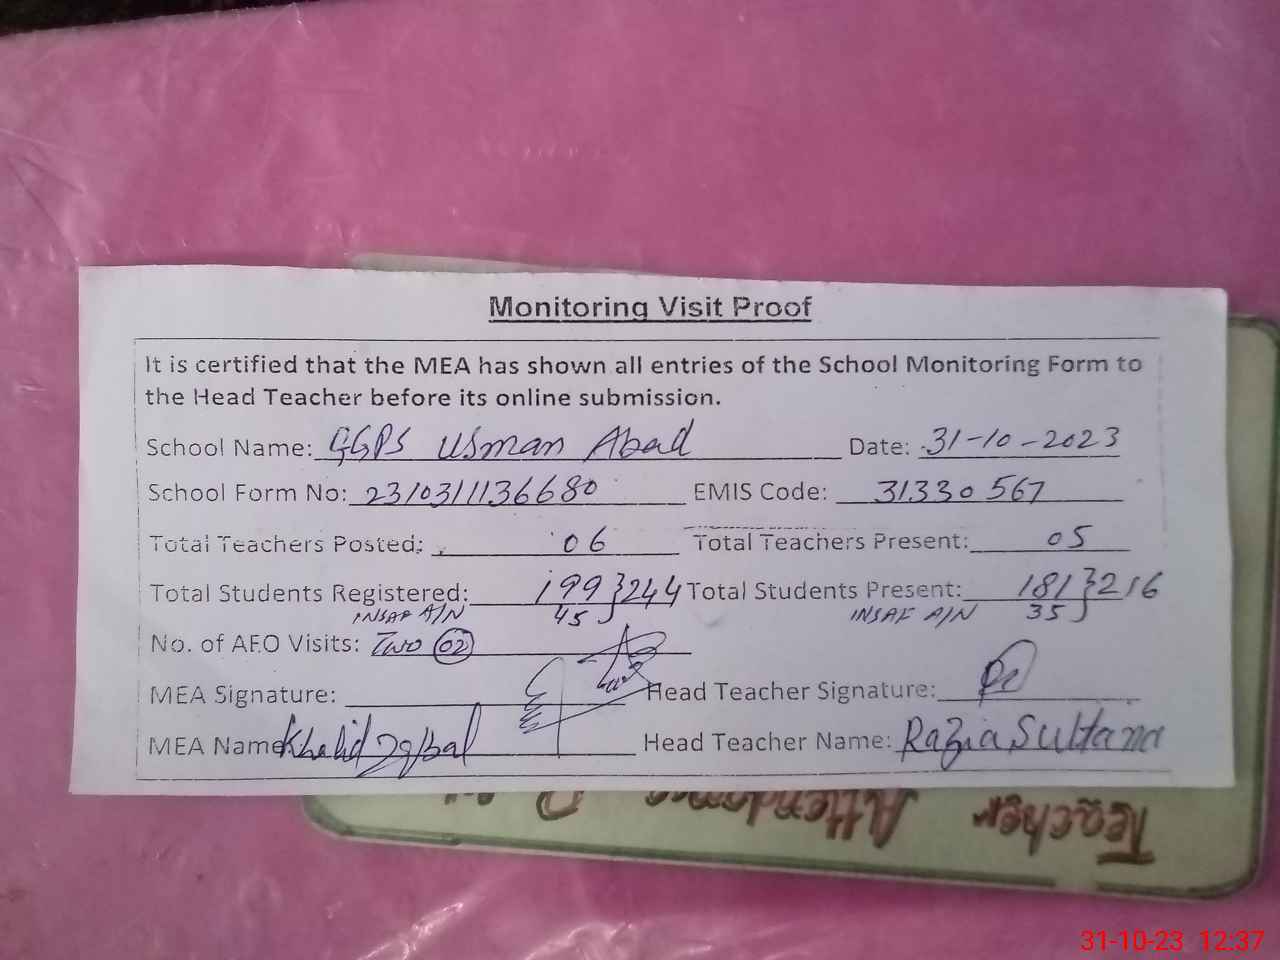 Monitoring Visit Proof
It is certified that the MEA has shown all entries of the School Monitoring Form to
the Head Teacher before its online submission.
School Name: GGPS Usman Abad Date: 31-10-2023
School Form No: 2310311136680 EMIS Code: 31330567
Total Teachers Posted: 06 Total Teachers Present: 05
Total Students Registered: 199}244 Total Students Present: 181}216
INSAF A/N 45 INSAF A/N 35
No. of AEO Visits: Two 02
MEA Signature: Head Teacher Signature:
MEA Name Khalid Iqbal Head Teacher Name: Razia Sultana
Teacher Attendance
31-10-23 12:37